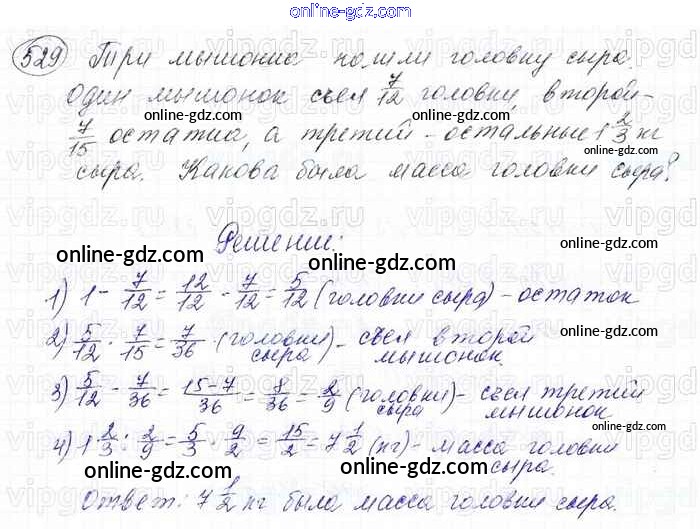 online-gdz.com
529 Три мышонка нашли головку сыра.
Один мышонок съел 7/12 головки, второй -
7/15 остатка, а третий - остальные 1 2/3 кг
сыра. Какова была масса головки сыра?
Решение:
online-gdz.com online-gdz.com
1) 1 - 7/12 = 12/12 - 7/12 = 5/12 (головки сыра) - остаток
2) 5/12 · 7/15 = 7/36 (головки сыра) - съел второй мышонок.
online-gdz.com
3) 5/12 - 7/36 = 15-7/36 = 8/36 = 2/9 (головки сыра) - съел третий мышонок
4) 1 2/3 : 2/9 = 5/3 · 9/2 = 15/2 = 7 1/2 (кг) - масса головки сыра.
online-gdz.com online-gdz.com
Ответ: 7 1/2 кг была масса головки сыра.
online-gdz.com